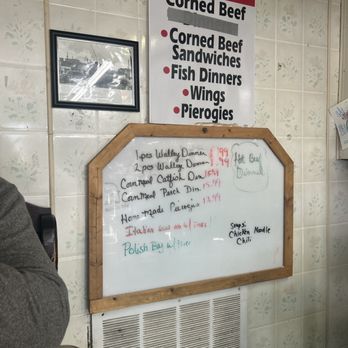 Corned Beef
• Corned Beef
Sandwiches
• Fish Dinners
• Wings
• Pierogies
1 pcs Walley Dinner
2 pcs Walley Dinner
Cornmeal Catfish Din
Cornmeal Perch Din
Home made Pierogies
Italian
Polish Boy w/ fries
Hot Beef
Dinner
Soups:
Chicken Noodle
Chili